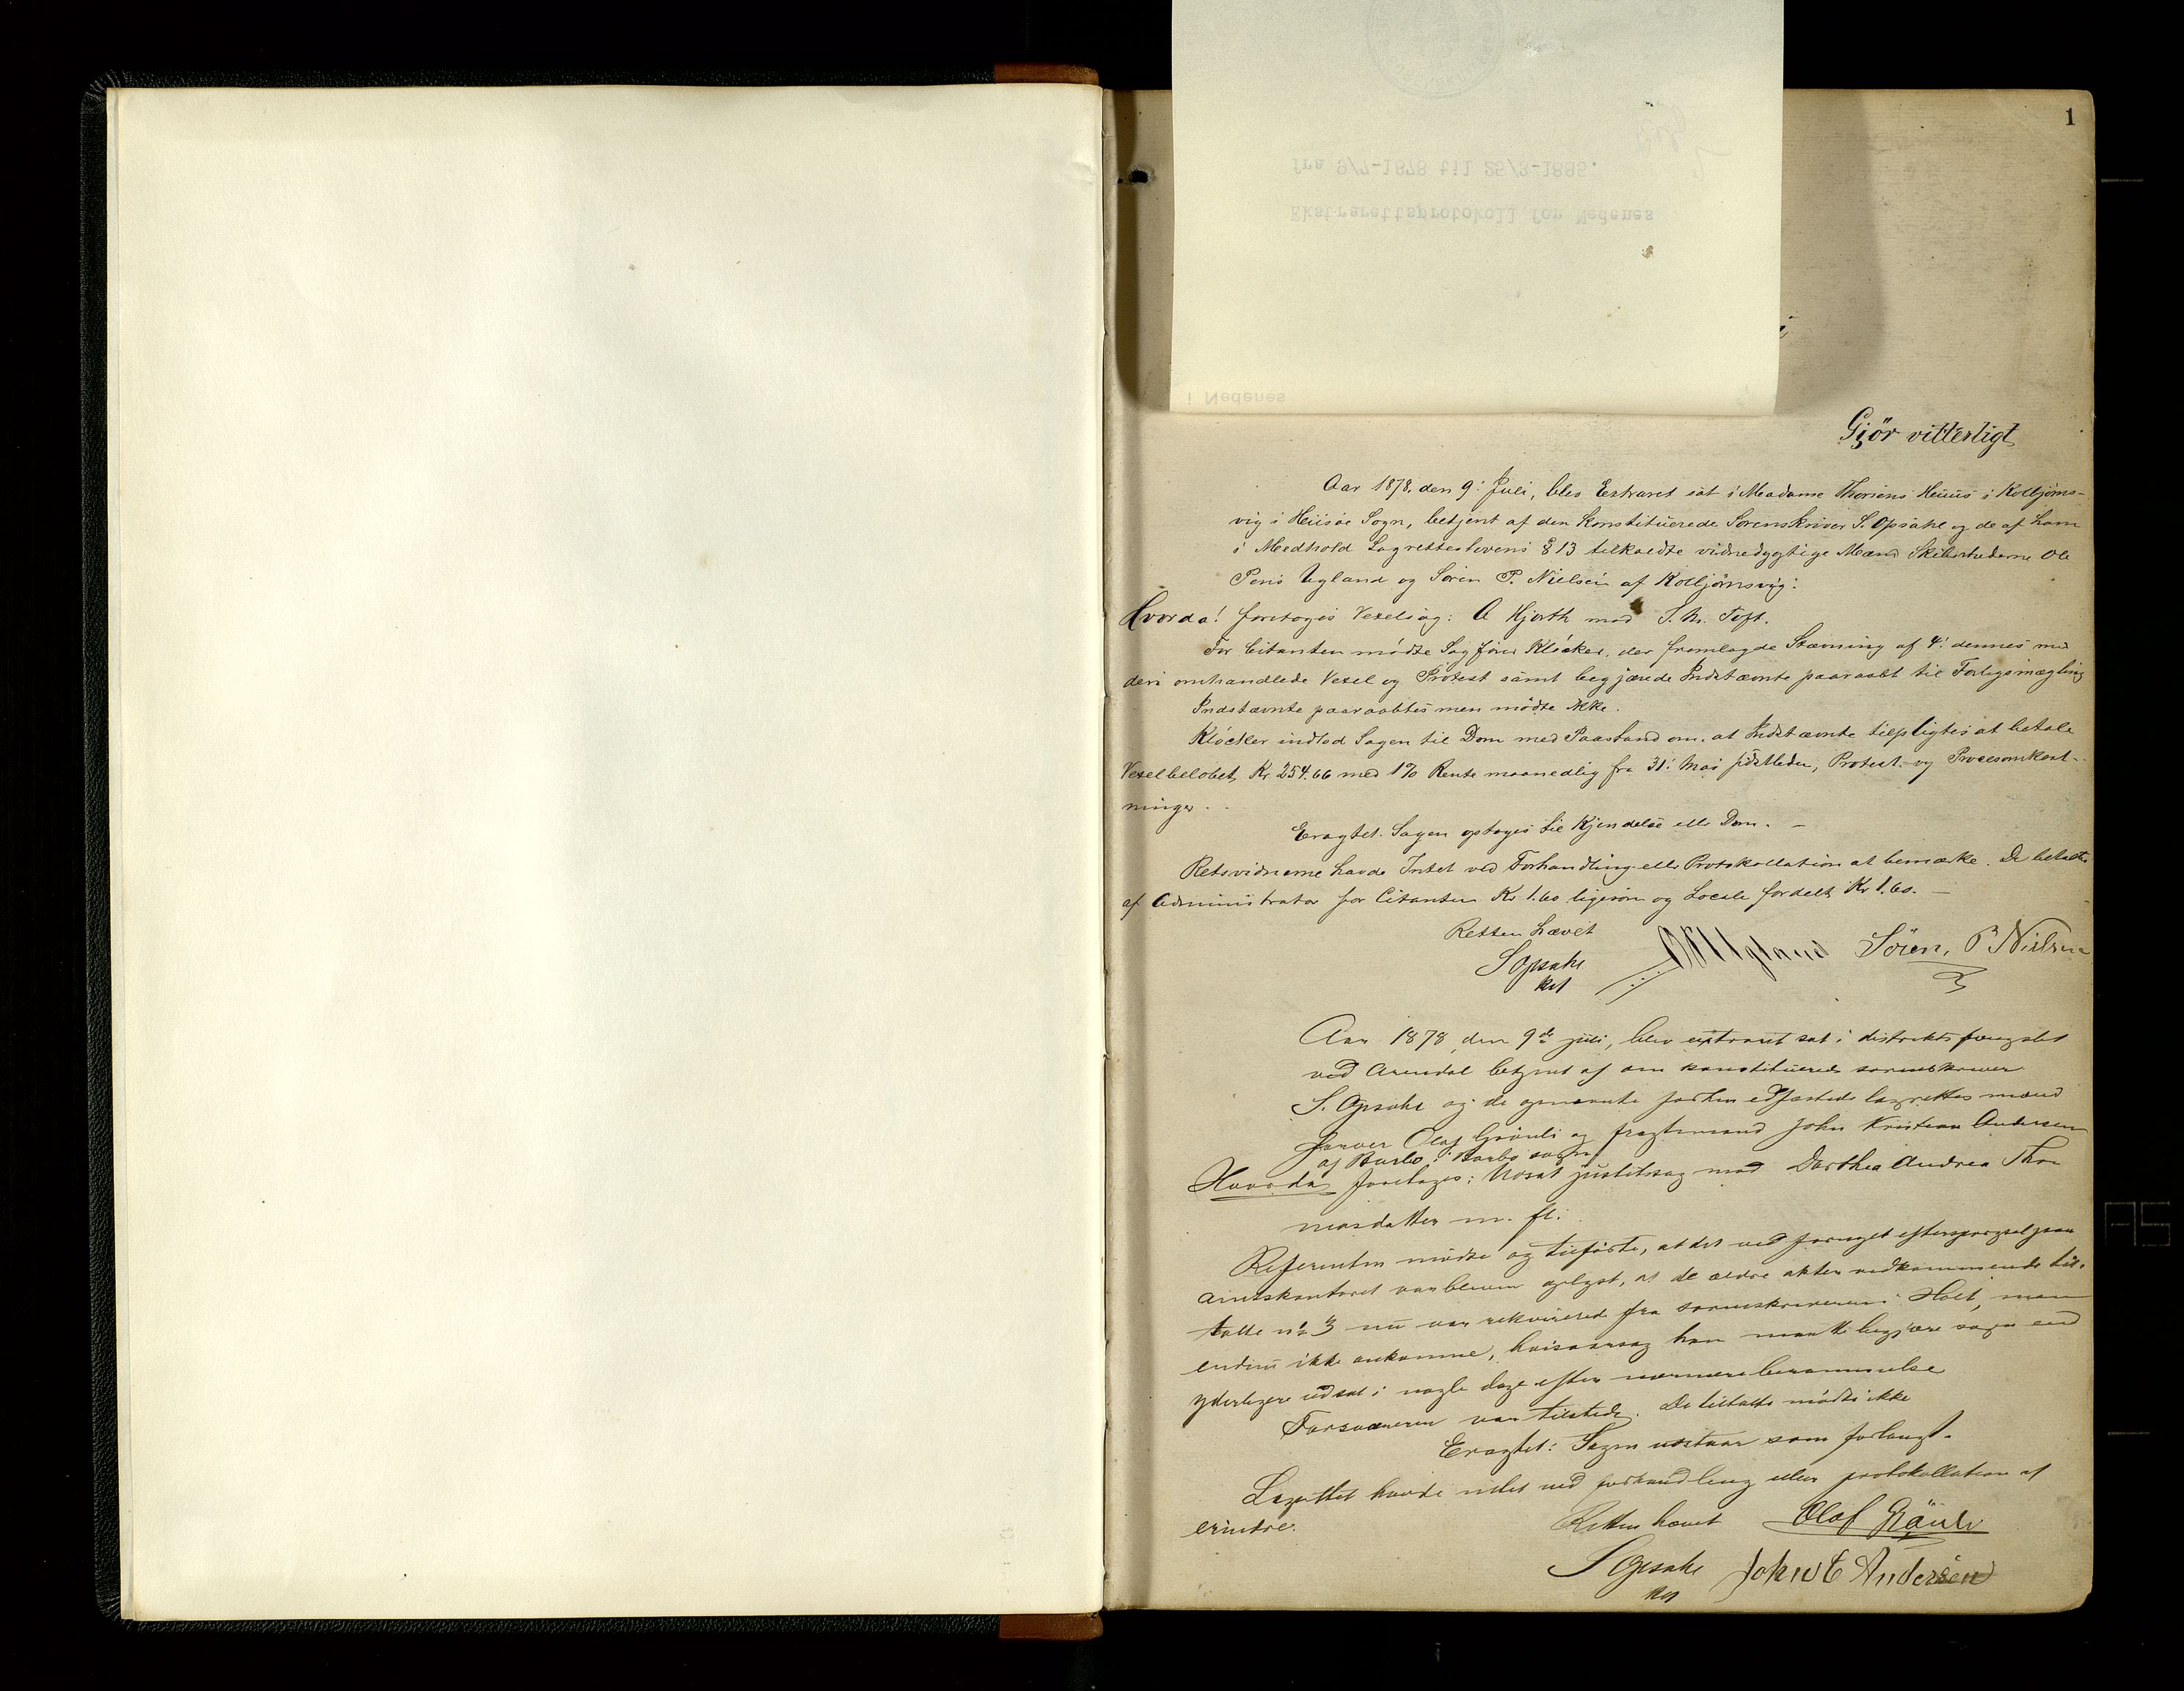 1
Ekstrarettsprotokoll for Nedenes
fra 9/7-1878 til 25/3-1885.
i Nedenes
Gjör vitterligt
Aar 1878. den 9: Juli, blev Extraret sat i Madame Thorsens Huus i Kolbjörns-
vig i Hiisöe Sogn, betjent af den konstituerede Sorenskriver S. Opsahl og de af ham
i Medhold Lagretteslovens § 13 tilkaldte vidnedygtige Mænd Skibsrhederne Ole
Ugland og Sören P. Nielsen af Kolbjörnsvig:
Hvorda! foretoges Vexelsag: A Hjorth mod S. M. Toft.
For Citanten mödte Sagförer Klöcker, der fremlagde Stævning af 4: dennes med
deri omhandlede Vexel og Protest samt begjærede Indstævnte paaraabt til Forligsmægling
Indstævnte paaraabtes men mödte ikke.
Klöcker indlod Sagen til Dom med Paastand om, at Indstævnte tilpligtes at betale
Vexelbelöbet, Kr. 254.66 med 1% Rente maanedlig fra 31: Mai sidstleden, Protest- og Procesomkost-
ninger.
Eragtet. Sagen optages til Kjendelse eller Dom. –
Retsvidnerne havde Intet ved Forhandling eller Protokollation at bemærke. De betaltes
af Administrator for Citanten Kr 1.60 ligesom og Locale fordelt Kr 1.60. –
Retten hævet
S Opsahl
kst
O P Ugland Sören, P Nielsen
Aar 1878, den 9de juli, blev extraret sat i distriktsfængslet
ved Arendal betjent af den konstituerede sorenskriver
S. Opsahl og de opnævnte forhen edfæstede lagrettesmænd
farver Olaf Gröuli og fragtemand John Kristian Andersen
af Barbo i Barbo sogn
Hvorda foretoges: Udsat justitssag mod Dorthea Andrea Tho
masdatter m. fl.
Referenten mödte og tilförte, at det ved foretaget efterspörgsel paa
amtskontoret var bleven oplyst, at de ældre akter vedkommende til-
talte no 3 nu var rekvirerede fra sorenskriveren i Holt, men
endnu ikke ankomne, hvisaarsag han maatte begjære sagen end
yderligere udsat i nogle dage efter nærmere berammelse
Forsvareren var tilstede. De tiltalte mödte ikke
Eragtet: Sagen udstaar som forlangt.
Lagrettet havde intet ved forhandling eller protokollation at
erindre.
Retten hævet Olaf Gröuli
S Opsahl John C Andersen
kst